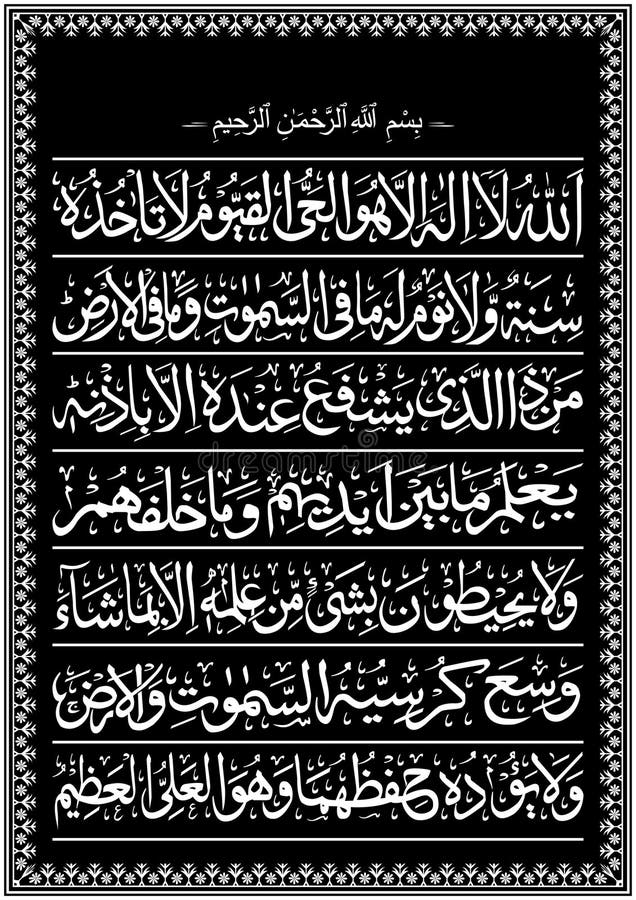 بِسْمِ ٱللَّهِ ٱلرَّحْمَٰنِ ٱلرَّحِيمِ
اَللّٰهُ لَآ اِلٰهَ اِلَّا هُوَ الْحَیُّ الْقَیُّوْمُ لَا تَاْخُذُهٗ
سِنَةٌ وَّلَا نَوْمٌ لَهٗ مَا فِی السَّمٰوٰتِ وَمَا فِی الْاَرْضِؕ
مَنْ ذَا الَّذِیْ یَشْفَعُ عِنْدَهٗ اِلَّا بِاِذْنِهٖؕ
یَعْلَمُ مَا بَیْنَ اَیْدِیْهِمْ وَمَا خَلْفَهُمْ
وَلَا یُحِیْطُوْنَ بِشَیْءٍ مِّنْ عِلْمِهٖۤ اِلَّا بِمَا شَآءَ
وَسِعَ كُرْسِیُّهُ السَّمٰوٰتِ وَالْاَرْضَۚ
وَلَا یَؤُدُهٗ حِفْظُهُمَا وَهُوَ الْعَلِیُّ الْعَظِیْمُ
dreamstime